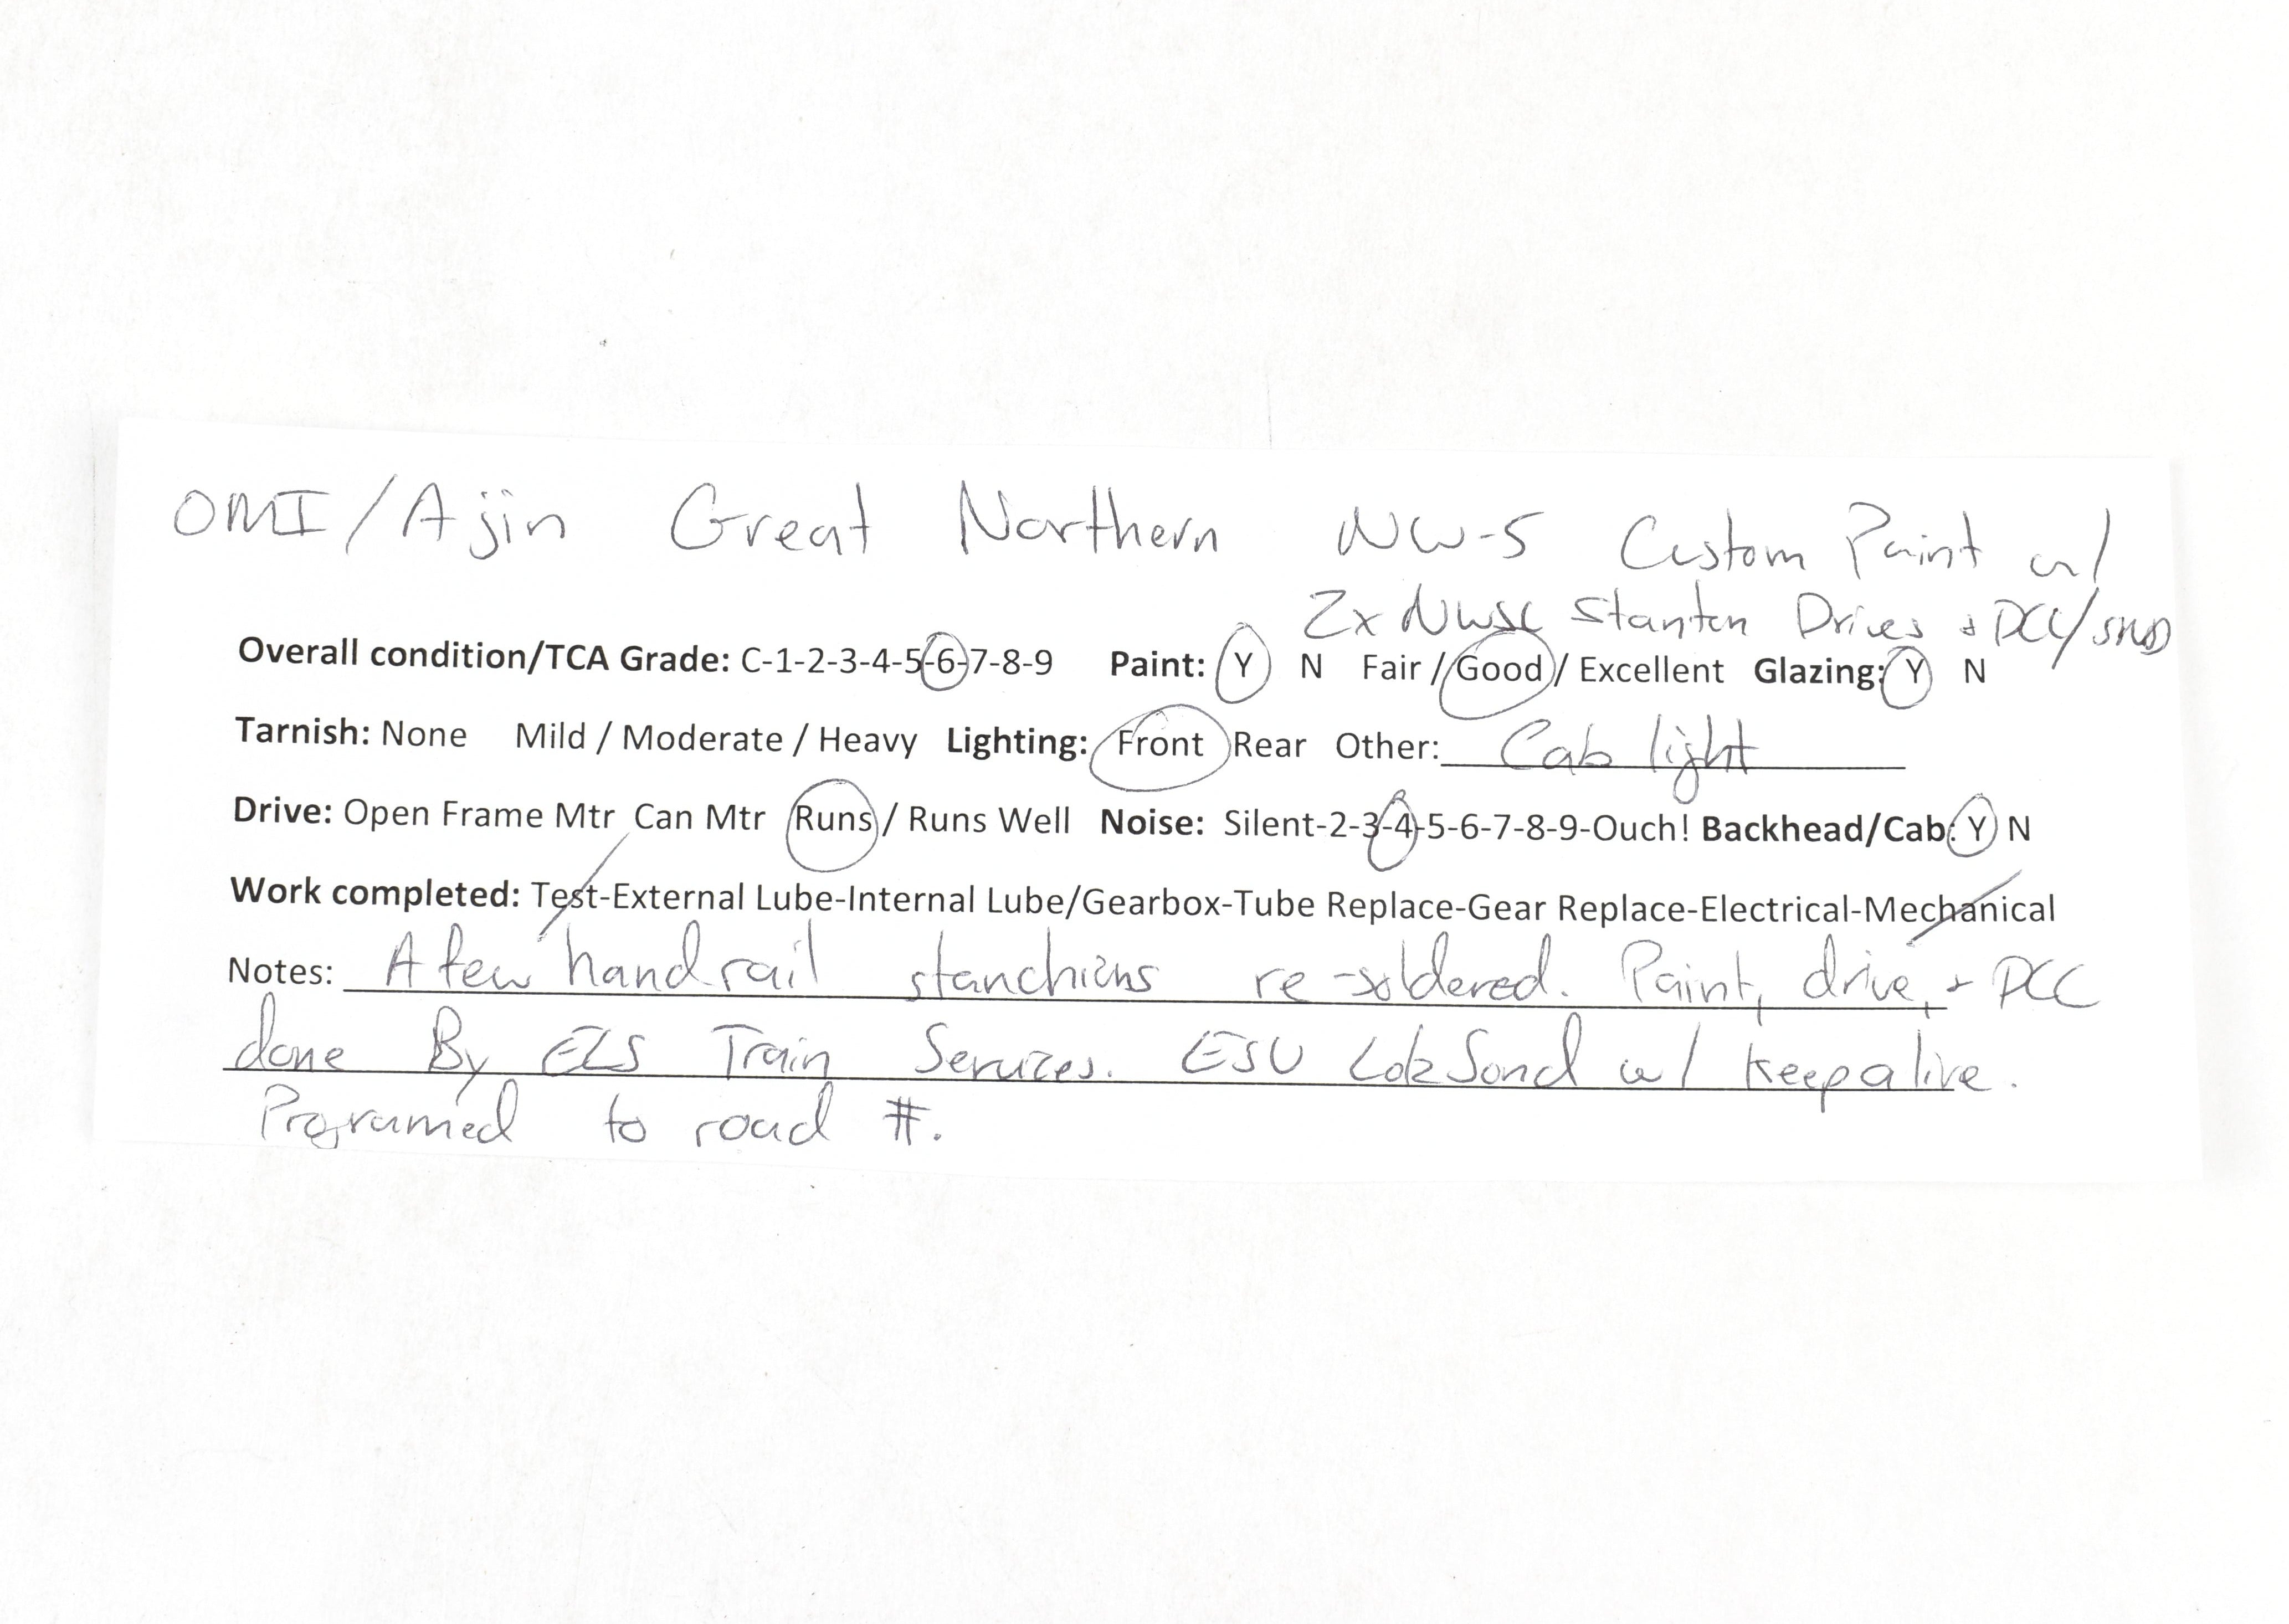 OMI/Ajin Great Northern NW-5 Custom Paint w/
2x NWSL Stanton Drives + DCC/SND
Overall condition/TCA Grade: C-1-2-3-4-5-6-7-8-9 Paint: Y N Fair / Good / Excellent Glazing: Y N
Tarnish: None Mild / Moderate / Heavy Lighting: Front Rear Other: Cab light
Drive: Open Frame Mtr Can Mtr Runs / Runs Well Noise: Silent-2-3-4-5-6-7-8-9-Ouch! Backhead/Cab: Y N
Work completed: Test-External Lube-Internal Lube/Gearbox-Tube Replace-Gear Replace-Electrical-Mechanical
Notes: A few handrail stanchions re-soldered. Paint, drive, + DCC
done By ELS Train Services. ESU LokSond w/ Keepalive.
Programed to road #.